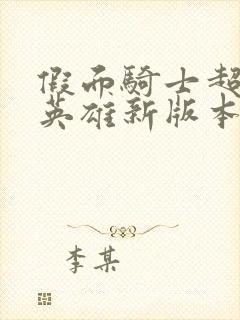 假而騎士超
英雄新版本
李某